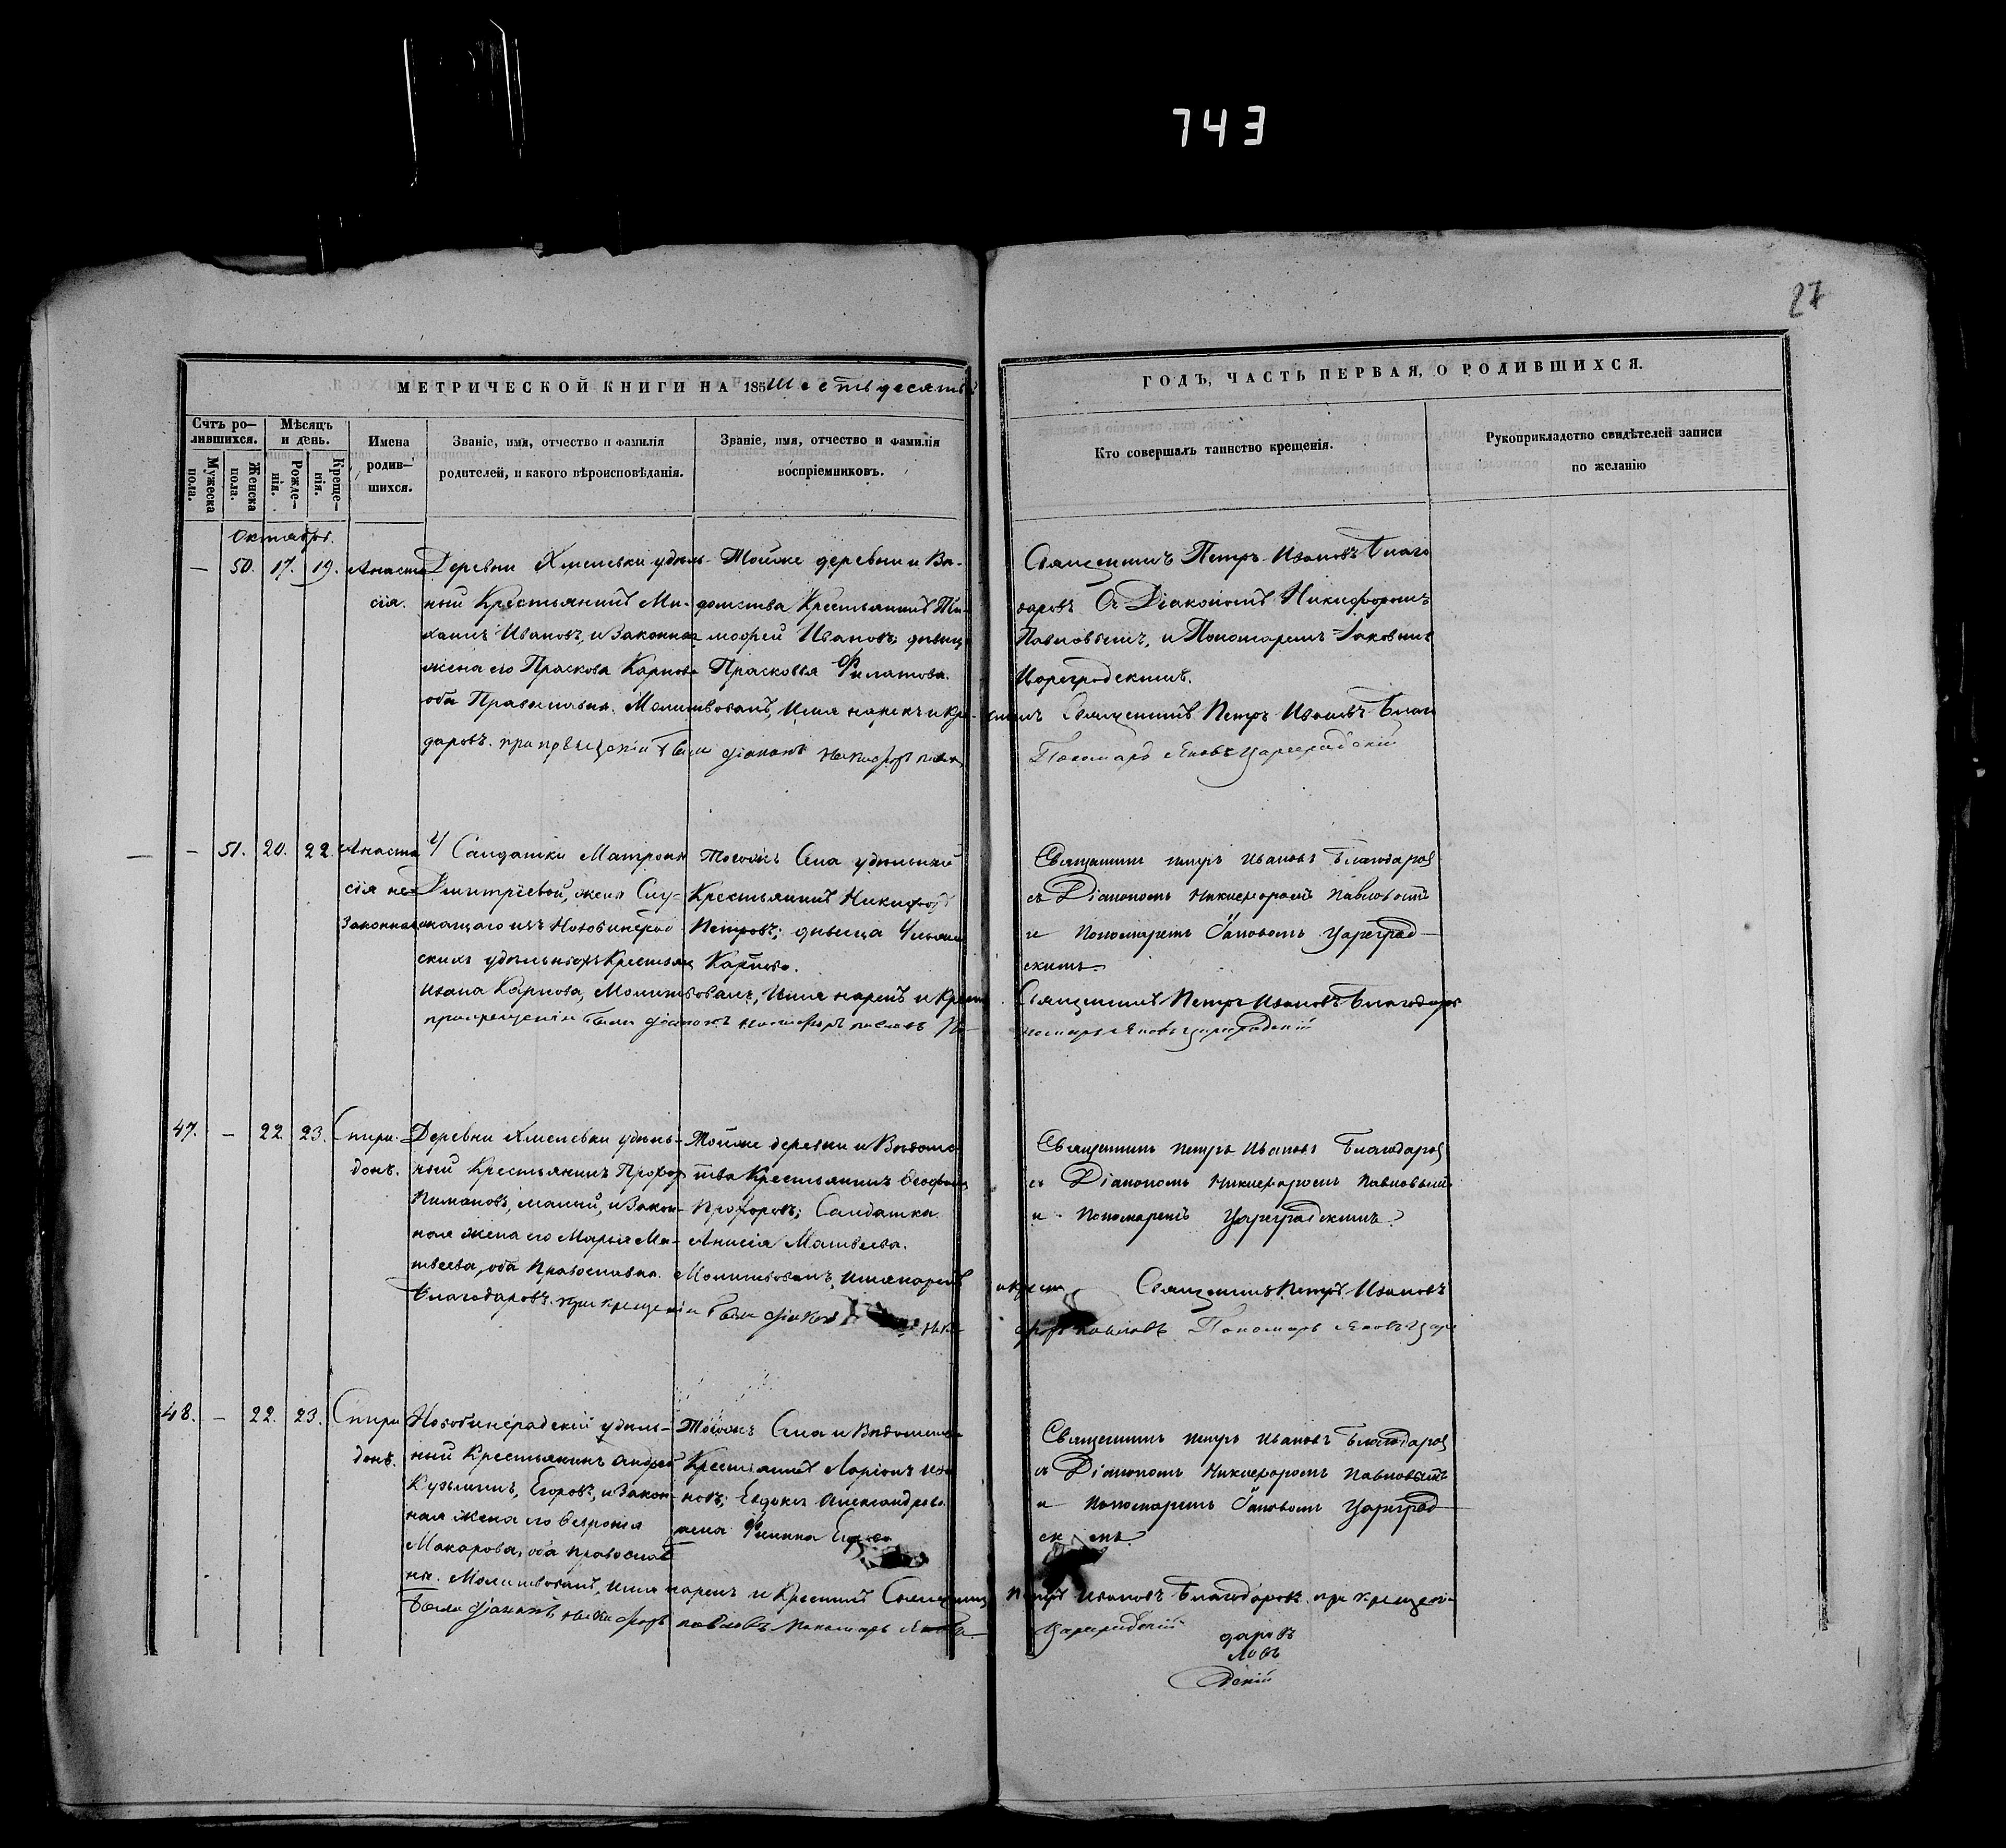 743
27
МЕТРИЧЕСКОЙ КНИГИ НА 185 Шестьдесятый
ГОДЪ, ЧАСТЬ ПЕРВАЯ, О РОДИВШИХСЯ.
Счтъ ро-
лившихся.
Мужеска
пола.
Женска
пола.
Мѣсяцъ
и день.
Рожде-
нія.
Креще-
нія.
Имена
родив-
шихся.
Званіе, имя, отчество и фамилія
родителей, и какого вѣроисповѣданія.
Званіе, имя, отчество и фамилія
воспріемниковъ.
Кто совершалъ таинство крещенія.
Рукоприкладство свидѣтелей записи
по желанію
Октябрь.
— 50. 17. 19.
Анаста
сія.
Деревни Хмелевки удѣль-
ный Крестьянинъ Ми-
хаилъ Ивановъ, и Законная
жена его Праскова Карпова
оба Православна.
Тойже деревни и Вѣ-
домства Крестьянинъ Ти-
мофей Ивановъ; дѣвица
Прасковья Филатова.
Священникъ Петръ Ивановъ Благо
даровъ Съ Діакономъ Никифоромъ
Павловымъ, и Пономаремъ Іаковомъ
Цареградскимъ.
Молитвовалъ, Имя нарекъ и Кре-
стилъ Священникъ Петръ Ивановъ Благо
даровъ. при крещеніи были діаконъ Никифоръ
Пономарь Яковъ Цареградскій
— 51. 20. 22.
Анаста
сія не-
Законная
У Салдатки Матроны
Дмитріевой, жена Слу-
жащаго изъ Новобинград
скихъ удѣльныхъ Крестьян
Ивана Карпова,
Тогожъ Села удѣльный
Крестьянинъ Никифоръ
Петровъ; дѣвица
Карпова.
Священникъ Петръ Ивановъ Благодаров
съ Діакономъ Никифоромъ Павловымъ
и Пономаремъ Іаковомъ Цареград-
скимъ.
Молитвовалъ, Имя нарекъ и Крест
Священникъ Петръ Ивановъ Благодаровъ
при крещеніи были діаконъ Никифоръ Павловъ По-
номарь Яковъ Цареградскій
47. — 22. 23.
Спири-
донъ.
Деревни Хмелевки удѣль-
ный Крестьянинъ Прохор
Пимановъ, малый, и Закон-
ная жена его Марья Ма-
твеева, оба Православна.
Тойже деревни и Вѣдомс
тва Крестьянинъ
Прохоровъ; Салдатка
Анисія Матвеева.
Священникъ Петръ Ивановъ Благодаров
съ Діакономъ Никифоромъ Павловымъ
и Пономаремъ Цареградскимъ.
Молитвовалъ, имя нарекъ
и крест Священникъ Петръ Ивановъ
Благодаровъ. при крещеніи были діакон Ники-
форъ Павловъ Пономарь Яковъ Царе
48. — 22. 23.
Спири
донъ.
Новобинградскій удѣль-
ный Крестьянинъ Андрей
Кузьминъ, Егоровъ, и Закон-
ная жена его Февронія
Макарова, оба православ
ны.
Тогожъ Села и Вѣдомства
Крестьянинъ Ларіонъ Ива
новъ; Евдокима Александрова
жена Филипа
Священникъ Петръ Ивановъ Благодаров
съ Діакономъ Никифоромъ Павловымъ
и Пономаремъ Іаковомъ Цареград-
скимъ.
Молитвовалъ, имя нарекъ и Крестилъ Священникъ
Петръ Ивановъ Благодаровъ при крещеніи
были діаконъ Никифоръ Павловъ Пономарь Яковъ
Цареградскій
даровъ
ловъ
дскій